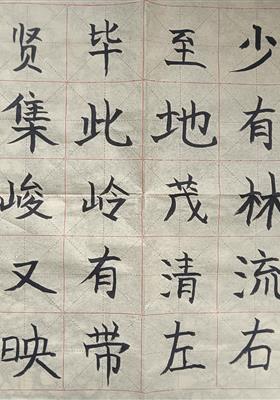 贤毕至少
集此地有
峻岭茂林
又有清流
映带左右